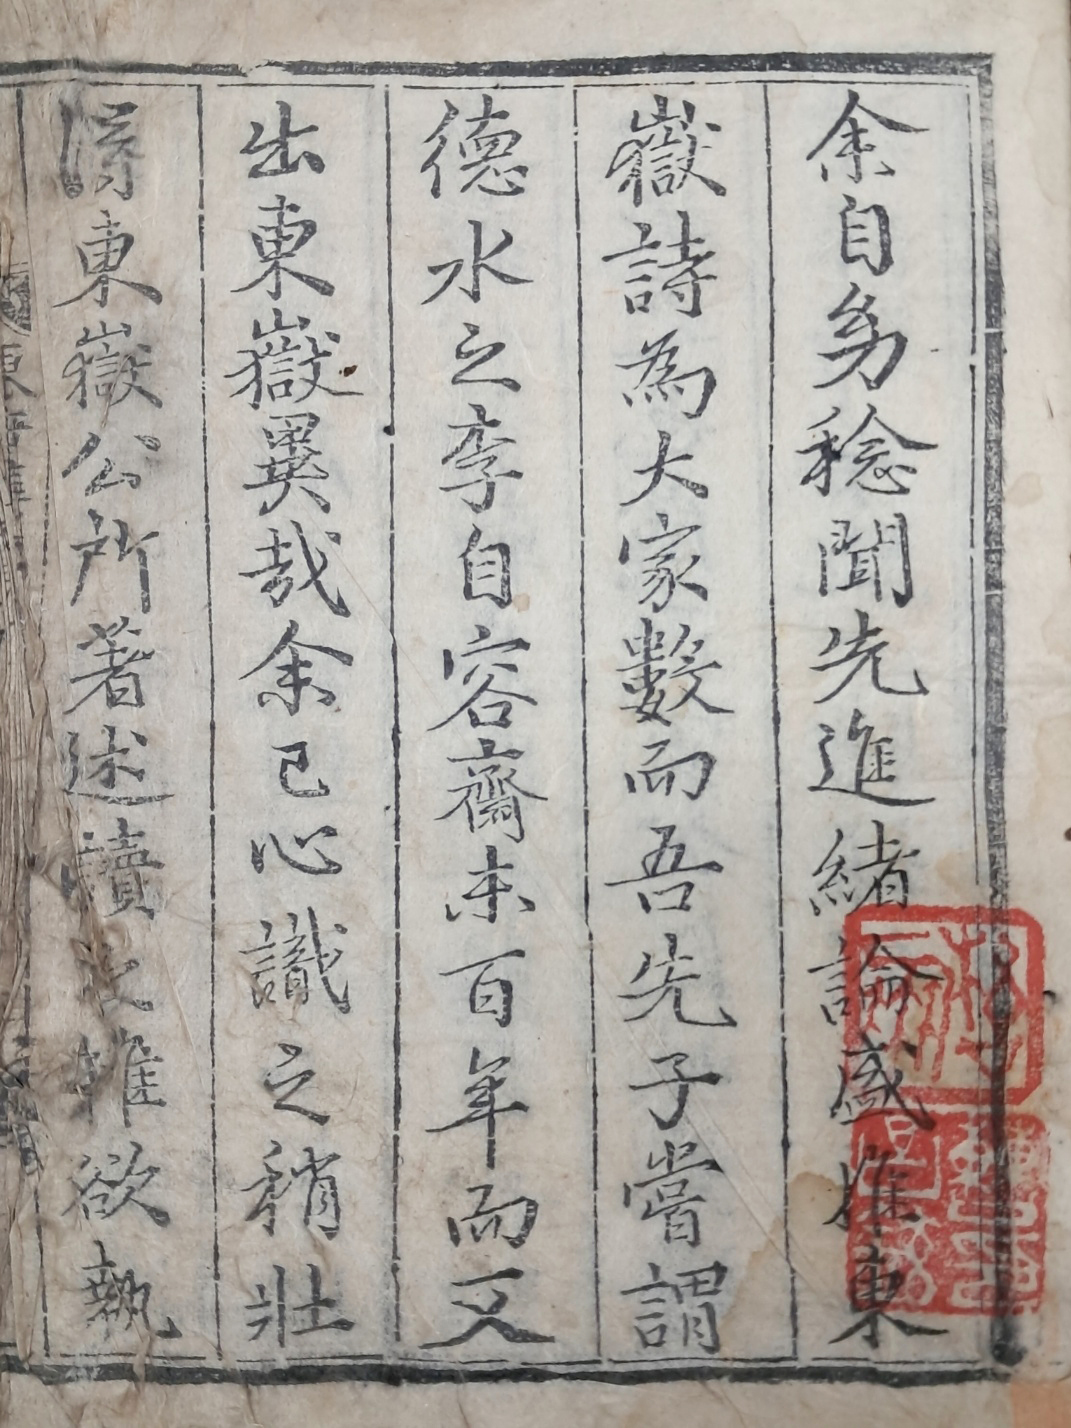 余自㓜稔聞先進緒論盛推東
嶽詩為大家數而吾先子嘗謂
德水之李自容齋未百年而又
出東嶽異哉余已心識之稍壯
得東嶽公所著述讀之雖欲執